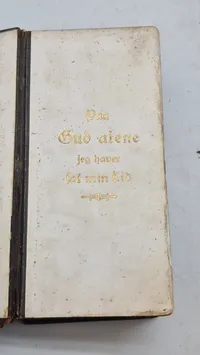 Paa
Gud alene
jeg haver
sat min Lid